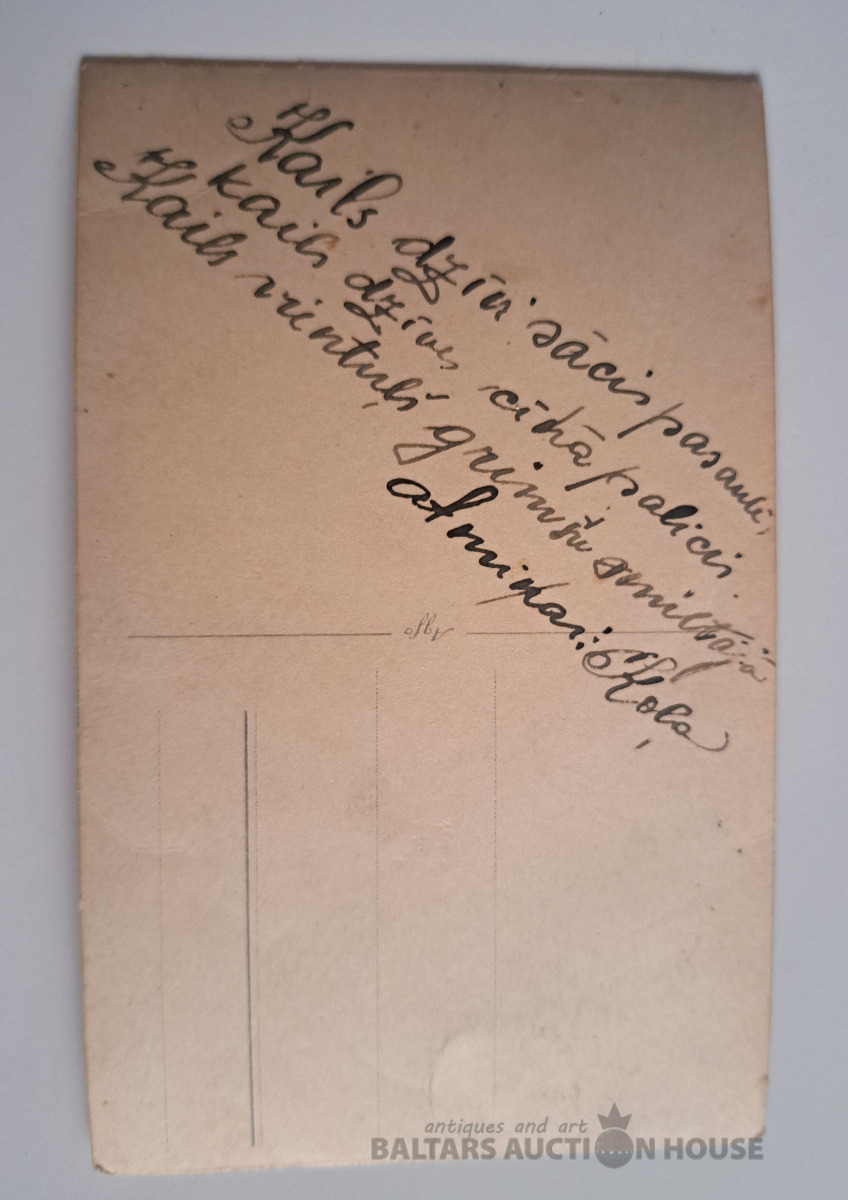 Kails dzīvi sācis pasaulē,
kails dzīves cīņā palicis.
Kails vientuļš grimšu smiltājā
atmiņai: Koļa
Agfa
antiques and art
BALTARS AUCTION HOUSE